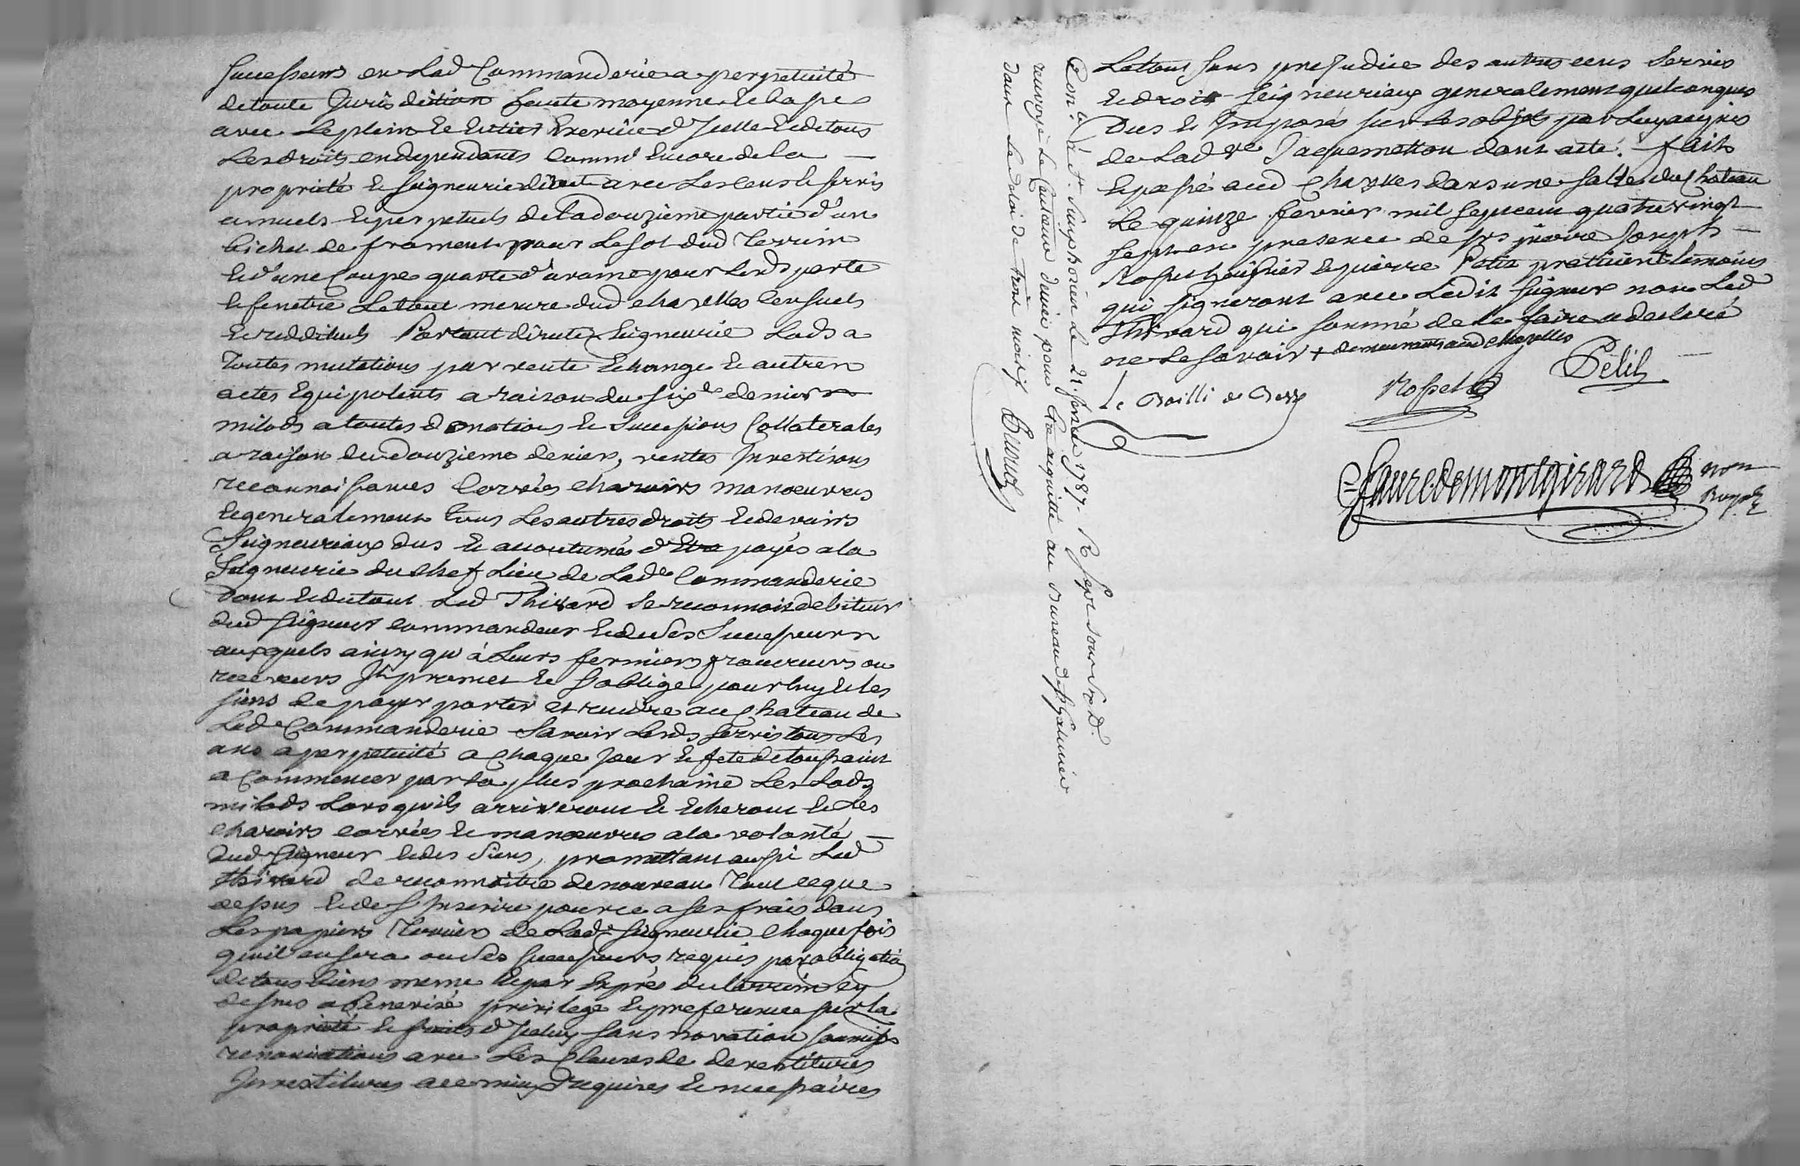 successeurs en lad Commanderie a perpetuité
de toute Jurisdiction haute moyenne & basse
avec le plein & Entier Exercice d'Jcelle & de tous
Les droits en dependants comme Encore de la
propriété & seigneurie directe avec Les cens & servis
annuels & perpetuels de la douzieme partie d'un
bichet de froment pour Le sol dud Terrein
& d'une Coupe quarte d'avoine pour Lesds porte
& fenetre Le tout mesure dud chazelles Censuels
& reddituels Portant directe seigneurie Lods a
Toutes mutations par vente Echange & autres
actes Equipolents a raison du six.e denier
milods a toutes donations & successions Collaterales
a raison du douzieme denier, ventes Jnvestisons
reconnoissances Corvées charois manoeuvres
& generalement tous Les autres droits & devoirs
Seigneuriaux dus & accoutumés d'Etre payés a la
Seigneurie du chef Lieu de Lad.e Commanderie
Dont & du tout Led Thivard se reconnoit debiteur
dud seigneur commandeur & de ses Successeurs
auxquels ainsy qu'à Leurs fermiers procureurs ou
receveurs Jl promet & s'oblige pour luy & les
siens de payer porter et rendre au Chateau de
Lad.e Commanderie Savoir Lesds servis tous Les
ans a perpetuité a Chaque Jour & fete de toussaint
a Commencer par la plus prochaine Les Lods
milods Lorsqu'ils arriveront & Echeront & Les
charois corvées & manoeuvres a la volonté
dud seigneur & des siens, promettant aussi Led
thivard de reconnoitre de nouveau Tout ce que
dessus & de s'Jnscrire pour ce a ses frais dans
Les papiers Terriers de Lad.e seigneurie Chaque fois
qu'il en sera ou ses successeurs requis par obligation
de tous biens meme & par Exprès du terrein cy
dessus abenevisé privilege & preference sur la
propriété & fruits d'Jceluy sans novation soumissions
renonciations avec Les Clauses de devestitures
Jnvestitures a ce requises & necessaires
Le tout sans prejudice des autres cens servis
& droits seigneuriaux generalement quelconques
Dus & Jmposés sur Les objets par Luy acquis
de Lad v.e Jaquemetton dont acte. fait
& passé aud Chazelles dans une salle du Chateau
Le quinze fevrier mil sept cent quatre vingt
sept en presence de srs pierre Joseph
Rosset & pierre Petit praticien temoins
qui signeront avec Ledit seigneur non Led
Thivard qui sommé de Le faire a declaré
ne Le savoir + demeurants aud chazelles
Petit
Le Bailli de
Rosset
Fauredemontgirard
non
Royal
Con.lé à St. Simphorien Le 21. fevrier 1787. R. sept sous six d.
dans Le delai de trois mois